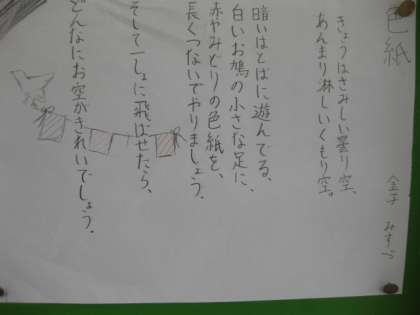 色紙
金子 みすゞ
きょうはさみしい曇り空、
あんまり淋しいくもり空。
暗いはとばに遊んでる、
白いお鳩の小さな足に、
赤やみどりの色紙を、
長くつないでやりましょう。
そして一しょに飛ばせたら、
どんなにお空がきれいでしょう。